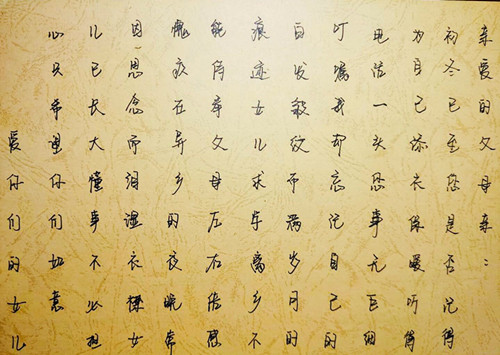 亲爱的父母亲：
初冬已至您是否记得
为自己添衣保暖听得
电话一头您事无巨细
叮嘱我却忘记自己的
白发皱纹布满岁月的
痕迹女儿求学离乡不
能侍奉父母左右倍感
愧疚在异乡的夜晚常
因思念而泪湿衣襟女
儿已长大懂事不必担
心只希望你们如意
爱你们的女儿